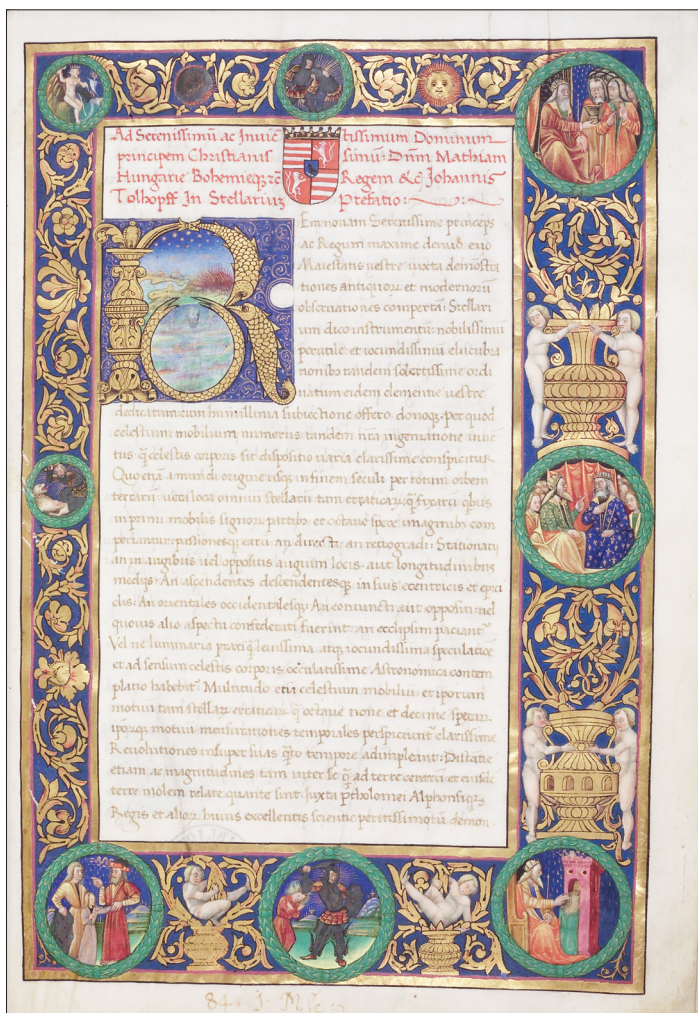 Ad Serenissimū ac Inuic tissimum Dominum
principem Christianis simū: Dn̄m Mathiam
Hungarie Bohemieqz rē Regem &c̨ Johannis
Tolhopff In Stellariuz Prefatio:
Rem nouam Serenissime princeps
ac Regum maxime denuo ergo
Maiestatis vestre iuxta demōstra
tiones antiquoꝝ et modernoꝝ
obseruationes compertā: Stellari
um dico instrumentū nobilissimū
perutile: et iocundissimū elucubra
tionibꝫ tandem solertissime ordi
natum eidem clementie vestre
dedicatum cum humillima subiectione offero donoqꝫ: per quod
celestium mobilium numerus tandem nr̄a ingeniatione inuē
tus q̄ celestis corporis sit dispositio varia clarissime conspicitur
Quo etiā a mundi origine usqꝫ in finem seculi per totum orbem
terrarū veri loca omniū stellarū tam erraticaꝝ q̄ fixarū quibus
in primi mobilis signoꝝ partibꝫ et octaue spere imaginibꝫ com
periantur: passionesqꝫ earū: an directi: an retrogradi: Stationarij
an in angibus uel oppositis augium locis: aut longitudinibus
medijs: An ascendentes descendentesqꝫ in suis ecentricis et epici
clis: An orientales occidentalesqꝫ: An coniuncti aut oppositi: uel
quouis alio aspectu confederati fuerint: an ecclipsim paciant᷑
Vel ne luminaria praxi q̄ leuissima atqꝫ iocundissima speculatiōe
et ad sensum celestis corporis occulatissime Astronomica contem
platio habebit᷑. Multitudo etiā celestium mobiliū: et iporum
motuū tam stellaꝝ erraticaꝝ q̄ octaue none et decime sperar̄.
ipoꝝqꝫ motuū mensurationes temporales perspiciunt᷑ clarissime
Reuolutiones insuper suas quo tempore adimpleant: Distātie
etiam ac magnitudines tam inter se q̄ ad terre centrum et eiusdē
terre molem relate quante sint: Juxta Ptholomei Alphonsiqꝫ
Regis et alioꝝ huius excellentis scientie peritissimoꝝ demon
84. 1. M